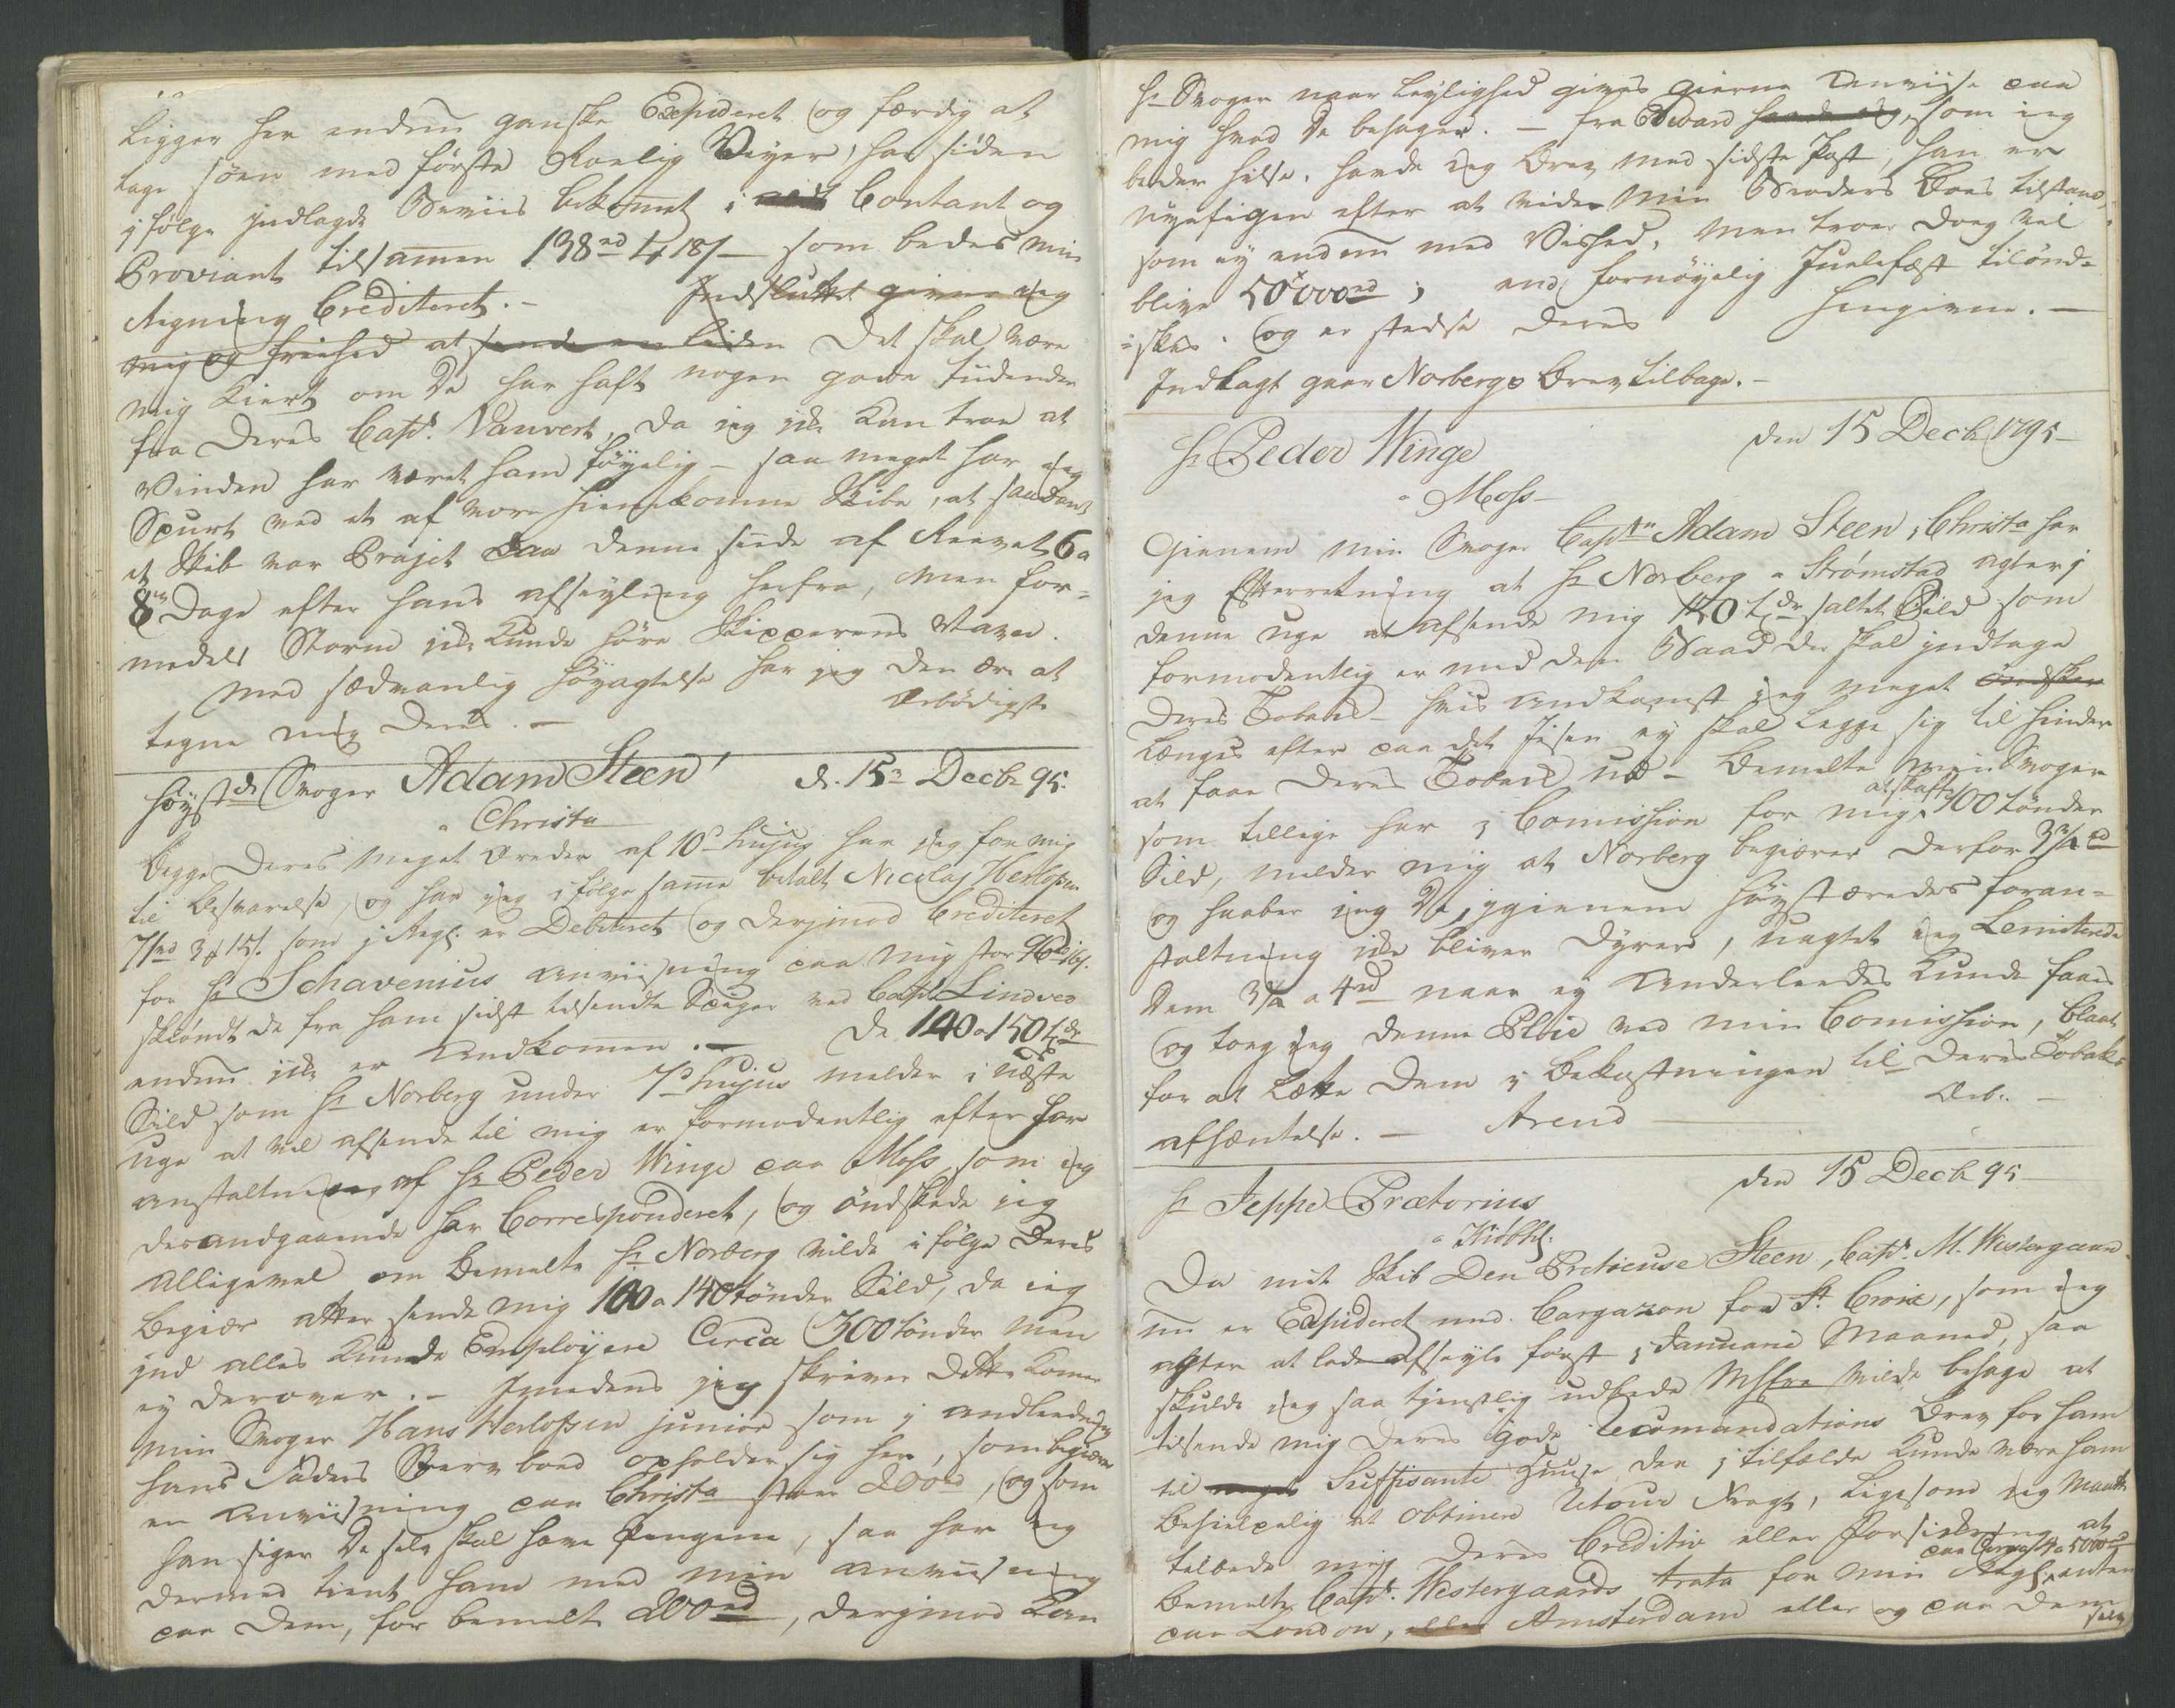 Ligger her endnu ganske Expederet og færdig at
tage søen med første Roelig Veyer, har siden
ifølge indlagde Beviis bekommet i Contant og
Proviant tilsammen 138rd 4 18s som bedes min
Regning Crediteret. – Indsluttet givne ieg
mig og friehed at sende en liden Det skal være
mig kiert om De har haft nogen gode tidender
fra Deres Capt. Vanvert, da jeg ikke kan troe at
Vinden har været ham føyelig – saa meget har ieg
Spurt ved et af vore hiemkomne Skibe, at saadant
et Skib var Prajet paa denne siide af Revet 6 a
8te Dage efter hans afseyling herfra, men for-
medels Storm ikke kunde høre Skipperens Navn.
Med sædvanlig høyagtelse har jeg den ære at
tegne mig Deres. – Ærbødigst
Høystærede Svoger Adam Steen d. 15n Decbr 95.
a Christa
Begge Deres meget ærede af 10de hujus har ieg for mig
til Besvarelse, og har jeg ifølge samme betalt Nicolaj Herlofsen
71rd 3 15s. som i Regl. er Debiteret og derimod Crediteret
for Hr Schavenius anviisning paa mig stor 96rd 16s.
skiøndt de fra ham sidst tilsendte Sæger ved Capt Lindved
endnu ikke er Andkommen. – De 140 a 150 tdr
Sild som Hr Norberg under 7de hujus melder i næste
uge at vil afsende til mig er formodentlig efter for
anstaltning af Hr Peder Winge paa Moss, som ieg
derandgaaende har Corresponderet, og øndskede jeg
alligevel om bemelte Hr Norberg vilde ifølge Deres
begiær atter sende mig 100 a 140 tønder Sild, da ieg
ind alles kunde Employere Circa 300 tønder men
ey derover. – Imedens jeg skriver dette kommer
min Svoger Hans Herlofsen junior som i andledning
hans Faders Sterv boed opholder sig her, som begiærer
en Anviisning paa Christa stor 200rd, og som
han siger De selv skal have pengene, saa har ieg
dermed tient ham med min anviisning
paa Dem, for bemelt 200rd, derimod kan
Hr Svoger naar leylighed gives gierne anviise paa
mig hvad De behager. – fra Edvard havde ieg, som ieg
beder hilse, havde ieg Brev med sidste Post, han er
nysgierig efter at vide min Broders Boes tilstand,
som ey endnu med Vished, men troer dog vel
blive 50000rd; end fornøyelig Juulefæst tilønd-
skes. og er stedse Deres Hengivne. –
Indlagt gaar Norbergs Brev tilbage. –
Hr Peder Winge den 15 Decbr 1795 –
a Moss –
Gienem min Svoger Captn Adam Steen, Christa har
jeg Efterretning at Hr Norberg a Strømstad agter i
denne uge at afsende mig 140 tdr saltet Sild som
formodentlig er med den Baad der skal indtage
Deres Tobak – hvis andkomst ieg meget øndsker
længes efter paa det Isen ey skal legge sig til hinder
at faae Deres Toback ud – Bemelte min Svoger
som tillige har i Comission for mig at skaffe 100 tønder
Sild, melder mig at Norberg begiærer derfor 3¾ rd
og haaber ieg De, igienem høystæredes foran-
staltning ikke bliver dyrere, uagtet ieg Limiterede
Dem 3½ a 4rd naar ey Anderleedes kunde faaes
og tog ieg denne Sild ved min Comission, blant
for at lætte Dem i Bekostningen til Deres Tobaks
afhæntelse. – Arend Ærb. –
Hr Jeppe Prætorius den 15 Decbr 95 –
a Kiøbhl.
Da mit Skib Den Pretieuse Steen, Capt. M. Westergaard
nu er Expederet med Cargazon for St Croix, som ieg
agter at lade afseyle først i Januarii Maaned, saa
skulde ieg saa tienstlig udbede Msr vilde behage at
tilsende mig Deres gode Recomandations Brev for ham
til Suffisante Huuse der i tilfælde kunde være ham
behielpelig at obtinere Retour Fragt, ligesom ieg maatte
tilbede mig Deres Creditiv eller Forsickring at
bemelte Capt. Westergaards trata for min Regl. paa Circa 4 a 5000rd enten
paa London, eller Amsterdam eller og paa Dem
selv